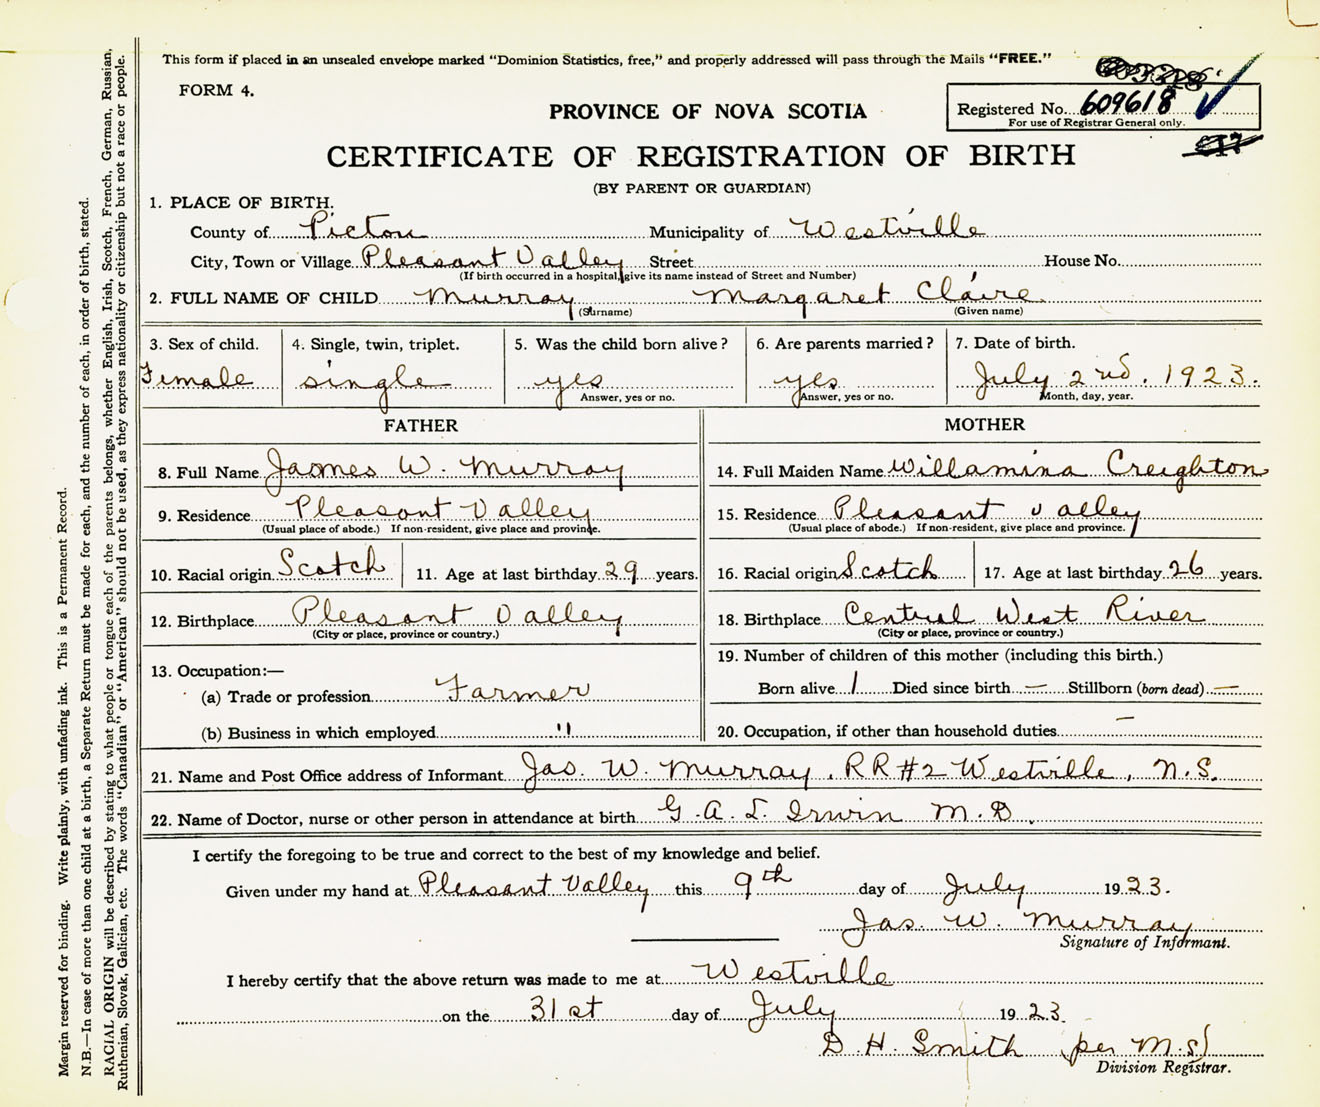 This form if placed in an unsealed envelope marked "Dominion Statistics, free," and properly addressed will pass through the Mails "FREE."
FORM 4.
PROVINCE OF NOVA SCOTIA
Registered No. 609618
For use of Registrar General only.
CERTIFICATE OF REGISTRATION OF BIRTH
(BY PARENT OR GUARDIAN)
1. PLACE OF BIRTH.
County of Pictou Municipality of Westville
City, Town or Village Pleasant Valley Street House No.
(If birth occurred in a hospital, give its name instead of Street and Number)
2. FULL NAME OF CHILD Murray Margaret Claire
(Surname) (Given name)
3. Sex of child. 4. Single, twin, triplet. 5. Was the child born alive? 6. Are parents married? 7. Date of birth.
Female single yes yes July 2nd. 1923.
Answer, yes or no. Answer, yes or no. Month, day, year.
FATHER MOTHER
8. Full Name James W. Murray 14. Full Maiden Name Willamina Creighton
9. Residence Pleasant Valley 15. Residence Pleasant Valley
(Usual place of abode.) If non-resident, give place and province. (Usual place of abode.) If non-resident, give place and province.
10. Racial origin Scotch 11. Age at last birthday 29 years. 16. Racial origin Scotch 17. Age at last birthday 26 years.
12. Birthplace Pleasant Valley 18. Birthplace Central West River
(City or place, province or country.) (City or place, province or country.)
13. Occupation:— 19. Number of children of this mother (including this birth.)
(a) Trade or profession Farmer Born alive 1 Died since birth — Stillborn (born dead) —
(b) Business in which employed " 20. Occupation, if other than household duties —
21. Name and Post Office address of Informant Jas. W. Murray, RR#2 Westville, N.S.
22. Name of Doctor, nurse or other person in attendance at birth G.A.L. Irwin M.D.
I certify the foregoing to be true and correct to the best of my knowledge and belief.
Given under my hand at Pleasant Valley this 9th day of July 1923.
Jas. W. Murray
Signature of Informant.
I hereby certify that the above return was made to me at Westville
on the 31st day of July 1923.
D. H. Smith (per M.S)
Division Registrar.
Margin reserved for binding. Write plainly, with unfading ink. This is a Permanent Record.
N.B.—In case of more than one child at a birth, a Separate Return must be made for each, and the number of each, in order of birth, stated.
RACIAL ORIGIN will be described by stating to what people or tongue each of the parents belongs, whether English, Irish, Scotch, French, German, Russian,
Ruthenian, Slovak, Galician, etc. The words "Canadian" or "American" should not be used, as they express nationality or citizenship but not a race or people.